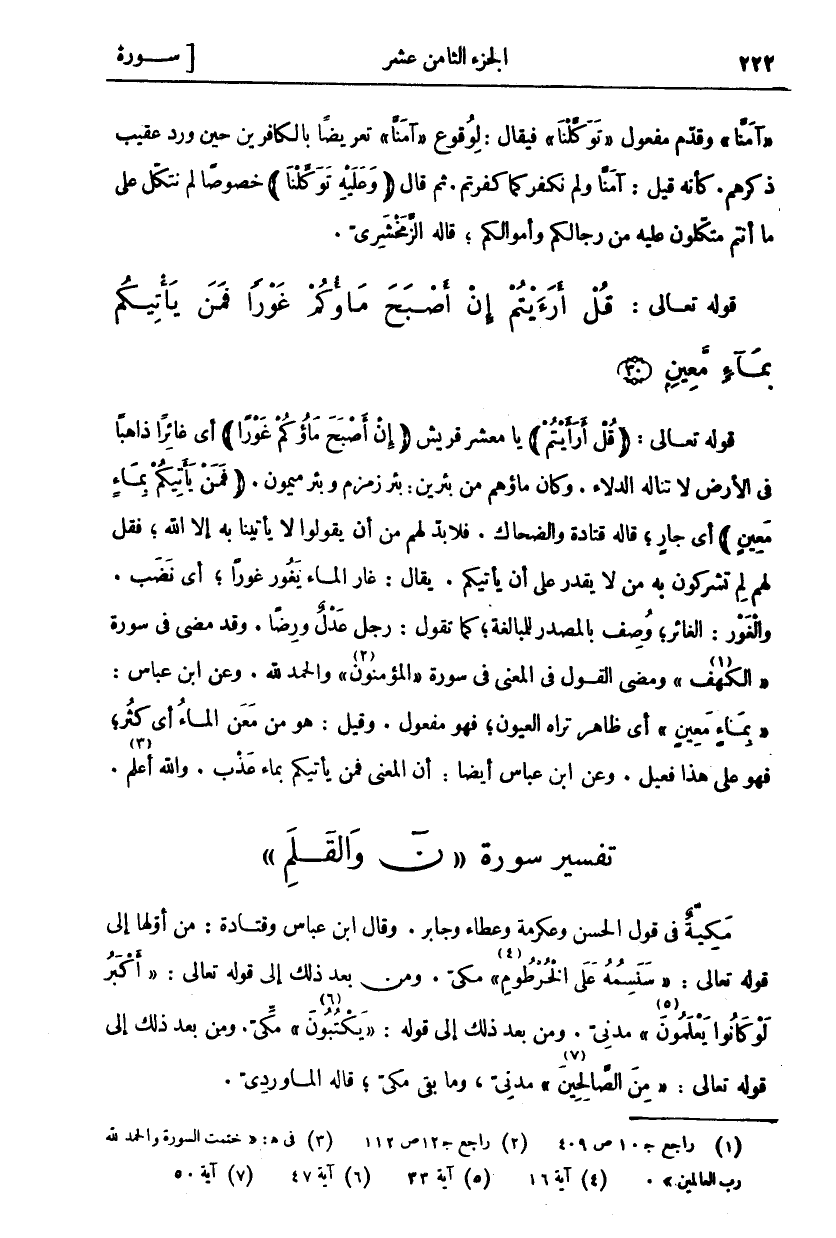 ٢٢٢ الجزء الثامن عشر [ سـورة
«آمَنَّا» وقدّم مفعول «تَوَكَّلْنَا» فيقال : لِوُقوع «آمَنَّا» تعريضًا بالكافرين حين ورد عقيب
ذكرهم. كأنه قيل : آمنَّا ولم نكفر كما كفرتم. ثم قال ﴿وَعَلَيْهِ تَوَكَّلْنَا﴾ خصوصًا لم نتكل على
ما أنتم متكلون عليه من رجالكم وأموالكم ؛ قاله الزَّمَخْشَرِىّ .
قوله تعـالى : قُلْ أَرَءَيْتُمْ إِنْ أَصْبَحَ مَآؤُكُمْ غَوْرًا فَمَن يَأْتِيكُم
بِمَآءٍ مَّعِينٍ ٣٠
قوله تعـالى : ﴿قُلْ أَرَأَيْتُمْ﴾ يا معشر قريش ﴿إِنْ أَصْبَحَ مَاؤُكُمْ غَوْرًا﴾ أى غائرًا ذاهبًا
فى الأرض لا تناله الدلاء . وكان ماؤهم من بئرين: بئر زمزم وبئر ميمون . ﴿فَمَنْ يَأْتِيكُمْ بِمَاءٍ
مَعِينٍ﴾ أى جارٍ ؛ قاله قتادة والضحاك . فلابدّ لهم من أن يقولوا لا يأتينا به إلا الله ؛ فقل
لهم لِمَ تشركون به من لا يقدر على أن يأتيكم . يقال : غار المـاء يَغُور غورًا ؛ أى نَضَب .
والْغَوْر : الغائر؛ وُصِف بالمصدر للمبالغة؛ كما تقول : رجل عَدْلٌ ورِضًا . وقد مضى فى سورة
« الكهف (١) » ومضى القـول فى المعنى فى سورة «المؤمنون (٢)» والحمد لله . وعن ابن عباس :
« بِمَاءٍ مَعِينٍ » أى ظاهر تراه العيون؛ فهو مفعول . وقيل : هو من مَعَن المـاءُ أى كَثُر؛
فهو على هذا فعيل . وعن ابن عباس أيضا : أن المعنى فمن يأتيكم بماء عَذْب . والله أعلم (٣) .
تفسير سورة « نَ وَالقَـلَمِ »
مَكِيَّةٌ فى قول الحسن وعكرمة وعطاء وجابر . وقال ابن عباس وقتـادة : من أوّلها إلى
قوله تعالى : « سَنَسِمُهُ عَلَى الْخُرْطُومِ (٤)» مكىّ . ومن بعد ذلك إلى قوله تعالى : « أَكْبَرُ
لَوْ كَانُوا يَعْلَمُونَ (٥) » مدنىّ . ومن بعد ذلك إلى قوله : « يَكْتُبُونَ (٦) » مكِّىّ. ومن بعد ذلك إلى
قوله تعالى : « مِنَ الصَّالِحِينَ (٧) » مدنىّ ، وما بقى مكىّ ؛ قاله المـاوردىّ .
(١) راجع جـ ١٠ ص ٤٠٩ (٢) راجع جـ ١٢ ص ١١٢ (٣) فى هـ: « ختمت السورة والحمد لله
رب العالمين » . (٤) آية ١٦ (٥) آية ٣٣ (٦) آية ٤٧ (٧) آية ٥٠